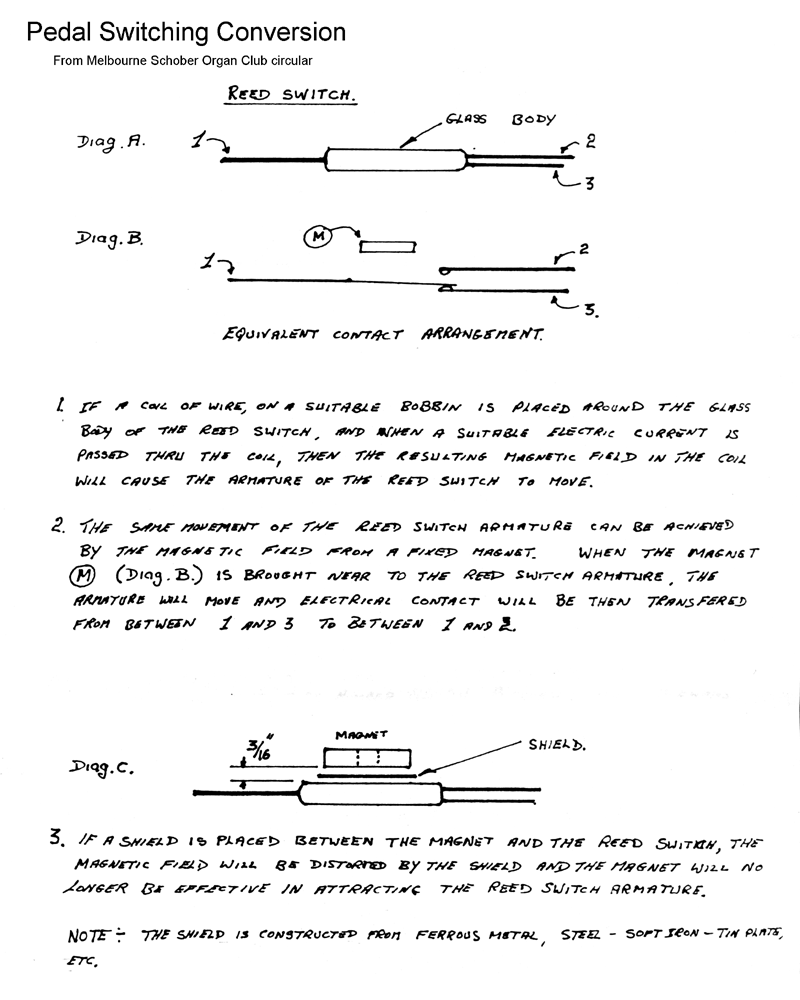 Pedal Switching Conversion
From Melbourne Schober Organ Club circular
REED SWITCH.
GLASS BODY
Diag. A.
1
2
3
Diag. B.
M
1
2
3.
EQUIVALENT CONTACT ARRANGEMENT.
1. IF A COIL OF WIRE, ON A SUITABLE BOBBIN IS PLACED AROUND THE GLASS
BODY OF THE REED SWITCH, AND WHEN A SUITABLE ELECTRIC CURRENT IS
PASSED THRU THE COIL, THEN THE RESULTING MAGNETIC FIELD IN THE COIL
WILL CAUSE THE ARMATURE OF THE REED SWITCH TO MOVE.
2. THE SAME MOVEMENT OF THE REED SWITCH ARMATURE CAN BE ACHIEVED
BY THE MAGNETIC FIELD FROM A FIXED MAGNET. WHEN THE MAGNET
M (Diag. B.) IS BROUGHT NEAR TO THE REED SWITCH ARMATURE, THE
ARMATURE WILL MOVE AND ELECTRICAL CONTACT WILL BE THEN TRANSFERED
FROM BETWEEN 1 AND 3 TO BETWEEN 1 AND 2.
MAGNET
3/16"
SHIELD.
Diag. C.
3. IF A SHIELD IS PLACED BETWEEN THE MAGNET AND THE REED SWITCH, THE
MAGNETIC FIELD WILL BE DISTORTED BY THE SHIELD AND THE MAGNET WILL NO
LONGER BE EFFECTIVE IN ATTRACTING THE REED SWITCH ARMATURE.
NOTE ÷ THE SHIELD IS CONSTRUCTED FROM FERROUS METAL, STEEL - SOFT IRON - TIN PLATE,
ETC.